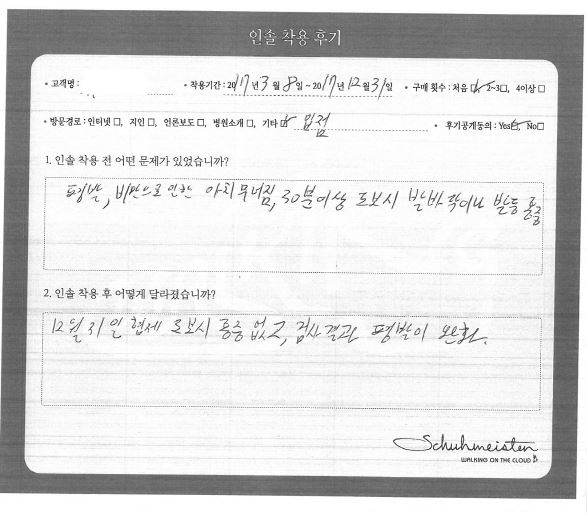 인솔 착용 후기
• 고객명 :
• 착용기간 : 2017년 3월 8일 ~ 2017년 12월 31일
• 구매 횟수 : 처음☑ 2~3□, 4이상 □
• 방문경로 : 인터넷 □, 지인 □, 언론보도 □, 병원소개 □, 기타☑ 입점
• 후기공개동의 : Yes☑, No□
1. 인솔 착용 전 어떤 문제가 있었습니까?
평발, 비만으로 인한 아치무너짐, 30분이상 도보시 발바닥이나 발등 통증
2. 인솔 착용 후 어떻게 달라졌습니까?
12월 31일 현재 도보시 통증 없고, 검사결과 평발이 완화.
Schuhmeister
WALKING ON THE CLOUD